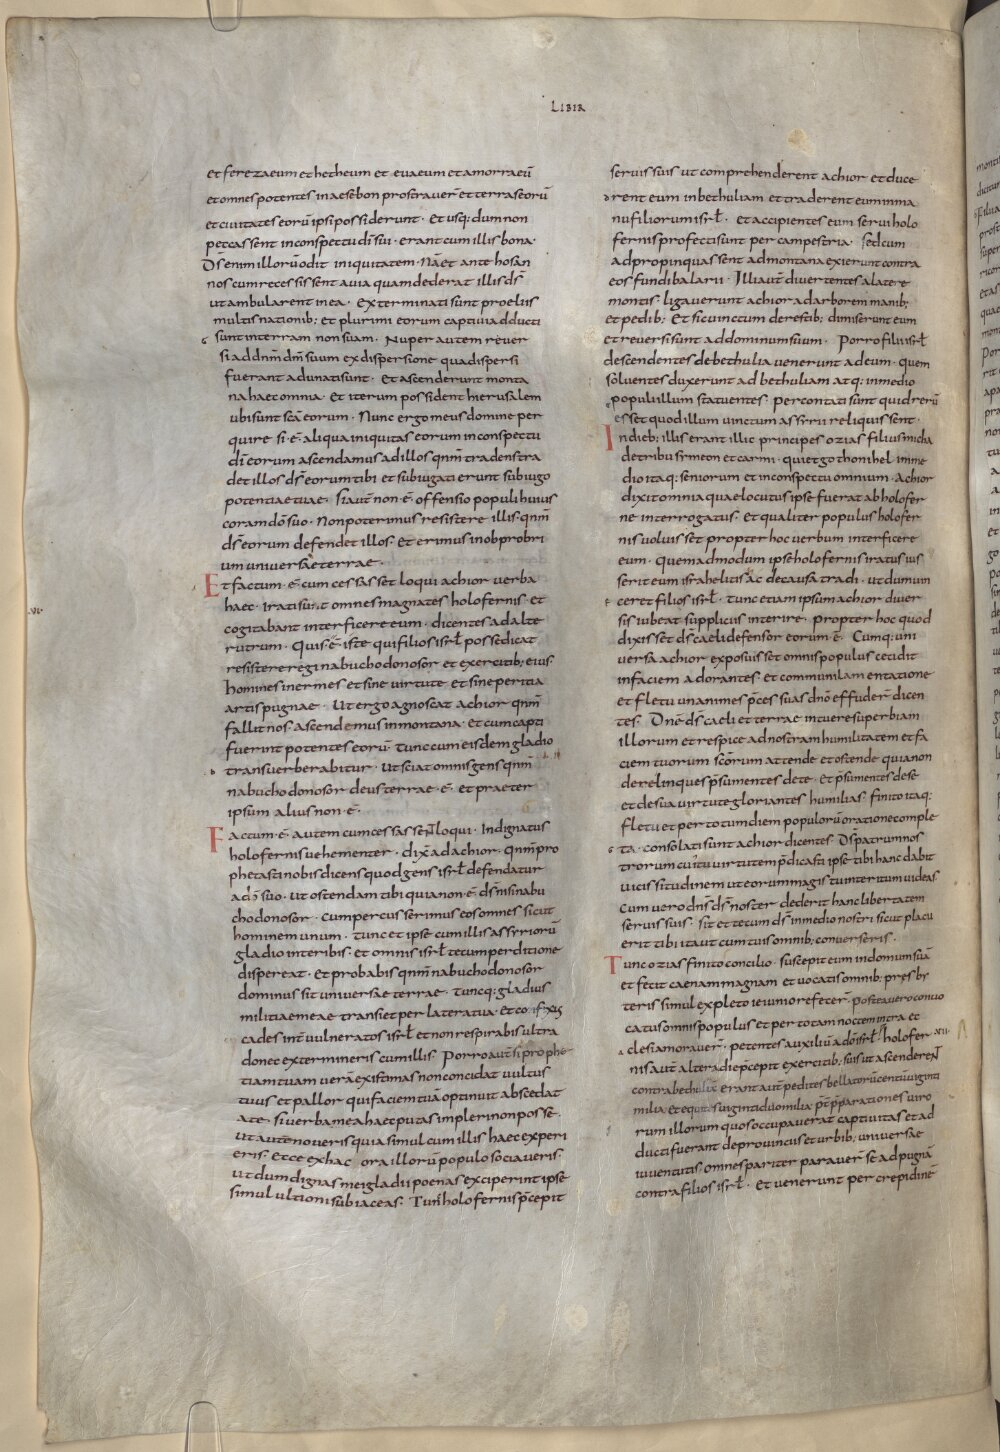 LIBER
et ferezaeum et hetheum et euaeum et amorraeū
et omnes potentes in aesebon prostrauer̄ et terras eorū
et ciuitates eorū ipsi possiderunt · Et usq; dum non
peccassent in conspectu dī sui · erant cum illis bona ·
Ds̄ enim illorū odit iniquitatem · Nā et ante hos an
nos cum recessissent a uia quam dederat illis ds̄
ut ambularent in ea · Exterminati sunt proeliis
multis nationib; et plurimi eorum captiui adducti
sunt in terram non suam · Nuper autem reuer
si ad dn̄m dm̄ suum ex dispersione qua dispersi
fuerant adunati sunt · Et ascenderunt monta
na haec omnia · Et iterum possident hierusalem
ubi sunt sc̄a eorum · Nunc ergo meus domine per
quire si · ē · aliqua iniquitas eorum in conspectu
dī eorum ascendamus ad illos qnm̄ tradens tra
det illos ds̄ eorum tibi et subiugati erunt sub iugo
potentiae tuae · Si aut̄ non · ē · offensio populi huius
coram dō suo · Non poterimus resistere illis · qnm̄
ds̄ eorum defendet illos · Et erimus in obprobri
um uniuersae terrae ·
Et factum · ē · cum cessasset loqui achior uerba
haec · Irati sunt omnes magnates holofernis · et
cogitabant interficere eum · dicentes ad alte
rutrum · Quis · ē · iste qui filios isrł posse dicat
resistere regi nabuchodonosor et exercitib; eius
homines inermes et sine uirtute et sine peritia
artis pugnae · Ut ergo agnoscat achior qnm̄
fallit nos · ascendemus in montana · Et cum capti
fuerint potentes eorū · Tunc cum eisdem gladio
transuerberabitur · Ut sciat omnis gens qnm̄
nabuchodonosor deus terrae · ē · et praeter
ipsum alius non · ē ·
Factum · ē · autem cum cessassent loqui · Indignatus
holofernis uehementer · dixit ad achior · qnm̄ pro
phetasti nobis dicens quod gens isrł defendatur
a dō suo · Ut ostendam tibi quia non · ē · ds̄ nisi nabu
chodonosor · Cum percusserimus eos omnes sicut
hominem unum · Tunc et ipse cum illis assyriorū
gladio interibis · et omnis isrł tecum perditione
dispereat · Et probabis qnm̄ nabuchodonosor
dominus sit uniuersae terrae · Tuncq; gladius
militiae meae transiet per latera tua · Et confixus
cades int̄ uulneratos isrł et non respirabis ultra
donec extermineris cum illis · Porro aut̄ si prophe
tiam tuam uerā existimas non concidat uultus
tuus et pallor qui faciem tuā optinuit abscedat
a te · si uerba mea haec putas impleri non posse ·
Ut autē noueris quia simul cum illis haec experi
eris · Ecce ex hac ora illorū populo sociaueris ·
Ut dum dignas mei gladii poenas exciperint ipse
simul ultioni subiaceas · Tunc holofernis p̄cepit
seruis suis ut comprehenderent achior et duce
rent eum in bethuliam et traderent eum in ma
nu filiorum isrł · Et accipientes eum serui holo
fernis profecti sunt per campestria · Sed cum
adpropinquassent ad montana exierunt contra
eos fundibalarii · Illi aut̄ diuertentes a latere
montis · ligauerunt achior ad arborem manib;
et pedib; Et sic uinctum de restib; dimiserunt eum
et reuersi sunt ad dominum suum · Porro filii isrł
descendentes de bethulia uenerunt ad eum · Quem
soluentes duxerunt ad bethuliam atq; in medio
populi illum statuentes · percontati sunt quid rerū
esset quod illum uinctum assyrii reliquissent ·
In dieb; illis erant illic principes ozias filius micha
de tribu symeon et carmi · qui et gothonihel · In me
dio itaq; seniorum et in conspectu omnium · Achior
dixit omnia quae locutus ipse fuerat ab holofer
ne interrogatus · Et qualiter populus holofer
nis uoluisset propter hoc uerbum interficere
eum · Quemadmodum ipse holofernis iratus ius
serit eum israhelitis ac de causa tradi · ut dum uin
ceret filios isrł · Tunc etiam ipsum achior diuer
sis iubeat suppliciis interire · propter hoc quod
dixisset ds̄ caeli defensor eorum · ē · Cumq; uni
uersa achior exposuisset omnis populus cecidit
in faciem adorantes · et communi lamentatione
et fletu unanimes p̄ces suas dnō effuder̄ dicen
tes · Dnē ds̄ caeli et terrae intuere superbiam
illorum et respice ad nostram humilitatem et fa
ciem tuorum sc̄orum attende et ostende quia non
derelinques p̄sumentes de te · et p̄sumentes de se
et de sua uirtute gloriantes humilias · finito itaq;
fletu et per totum diem populorū oratione comple
ta · consolati sunt achior dicentes · Ds̄ patrum nos
trorum cuius tu uirtutem p̄dicasti ipse tibi hanc dabit
uicissitudinem ut eorum magis tu interitum uideas
Cum uero dns̄ ds̄ noster dederit hanc libertatem
seruis suis · sit et tecum ds̄ in medio nostri sicut placu
erit tibi ita ut cum tuis omnib; conuerseris ·
Tunc ozias finito concilio · suscepit eum in domum suā
et fecit caenam magnam et uocatis omnib; presby
teris simul expleto ieiunio refecer̄ · postea uero conuo
catus omnis populus et per totam noctem intra ec
clesiam orauer̄ · petentes auxiliū a dō isrł · holofer
nis aut̄ altera die p̄cepit exercitib; suis ut ascenderen̄t
contra bethuliā · Erant aut̄ pedites bellatorū centū uiginti
milia et equites uiginti duo milia p̄t p̄parationes uiro
rum illorum quos occupauerat captiuitas et ad
ducti fuerant de prouinciis et urbib; uniuersae
iuuentutis · omnes pariter parauer̄ se ad pugnā
contra filios isrł · Et uenerunt per crepidinē